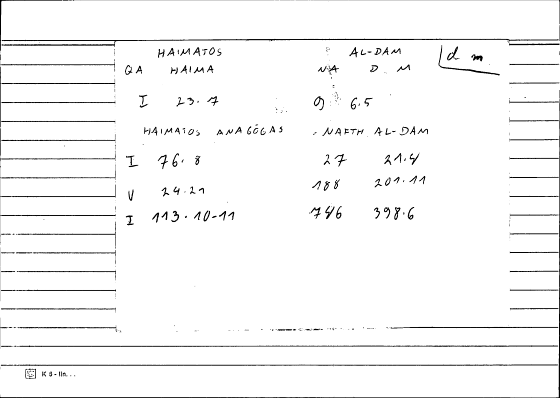 HAIMATOS AL-DAM d m
QA HAIMA NA D M
I 23.7 9 6.5
HAIMATOS ANAGŌGAS NAFTH AL-DAM
I 76.8 27 21.4
V 24.21 188 201.11
I 113.10-11 746 398.6
K 8 - lin...